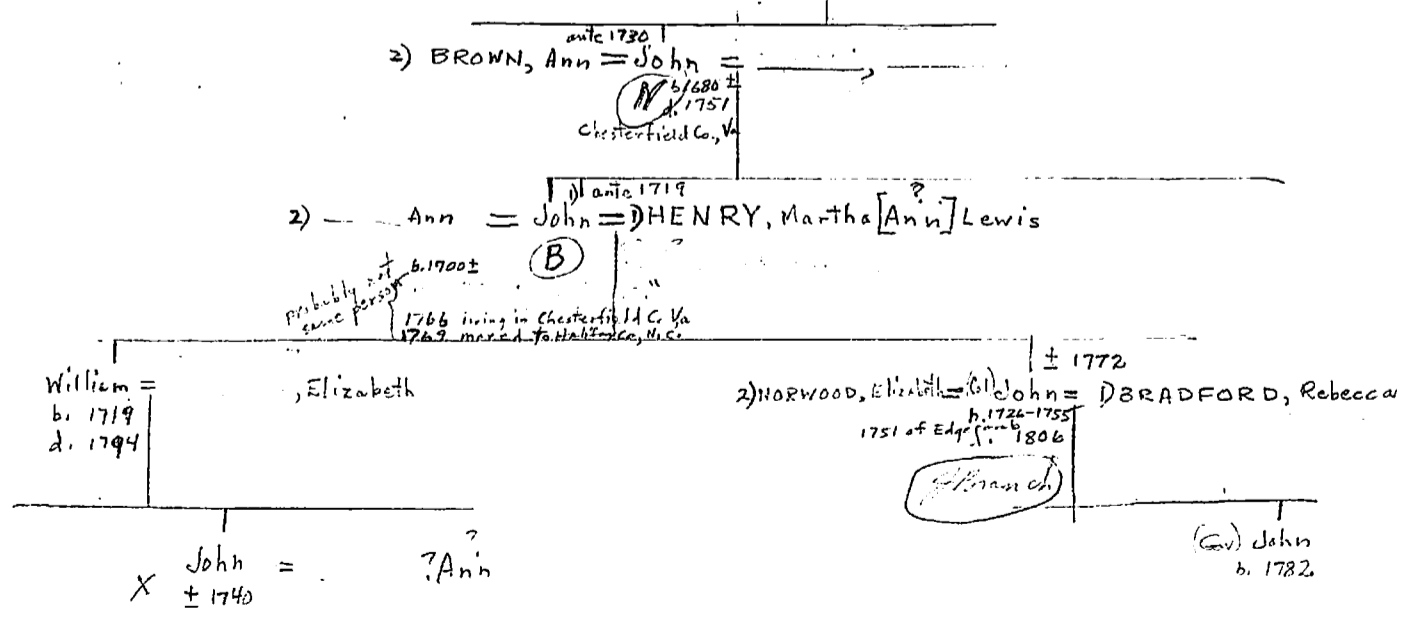 ante 1730
2) BROWN, Ann = John =
N b 1680 ±
d. 1751
Chesterfield Co., Va
1) ante 1719
?
2) Ann = John = 1) HENRY, Martha [Ann] Lewis
B
?
b. 1700 ±
probably not
same person
1766 living in Chesterfield C. Va
1769 moved to Halifax Co., N.C.
± 1772
William = , Elizabeth
b. 1719
d. 1794
2) NORWOOD, Elizabeth = (Col) John = 1) BRADFORD, Rebecca
b. 1726-1755
1751 of Edge
1806
Branch
John = ? Ann ?
X ± 1740
(Gov) John
b. 1782